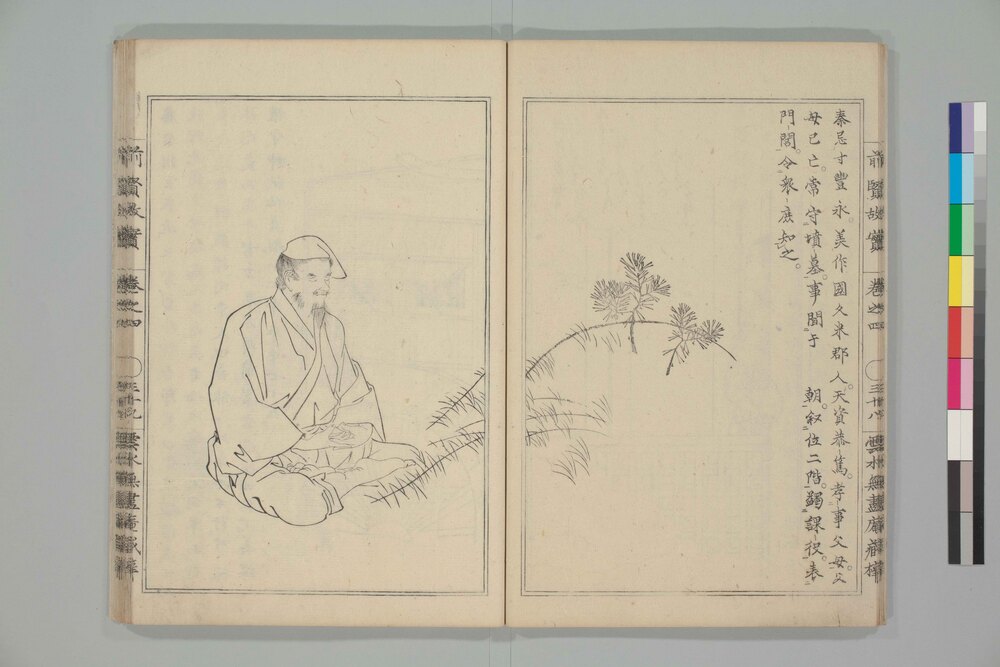 秦忌寸豐永。美作國久米郡人。天資恭篤。孝事父母。父
母已亡。常守墳墓。事聞于　朝。叙位二階。蠲課役。表
門閭。令衆庶知之。
前賢故實　卷之四　三十八　雲水無盡庵藏梓
前賢故實　卷之四　三十九　雲水無盡庵藏梓